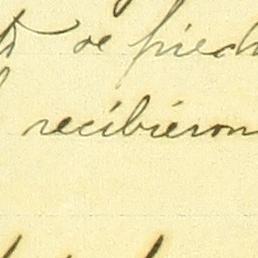 de piedr
recibieron